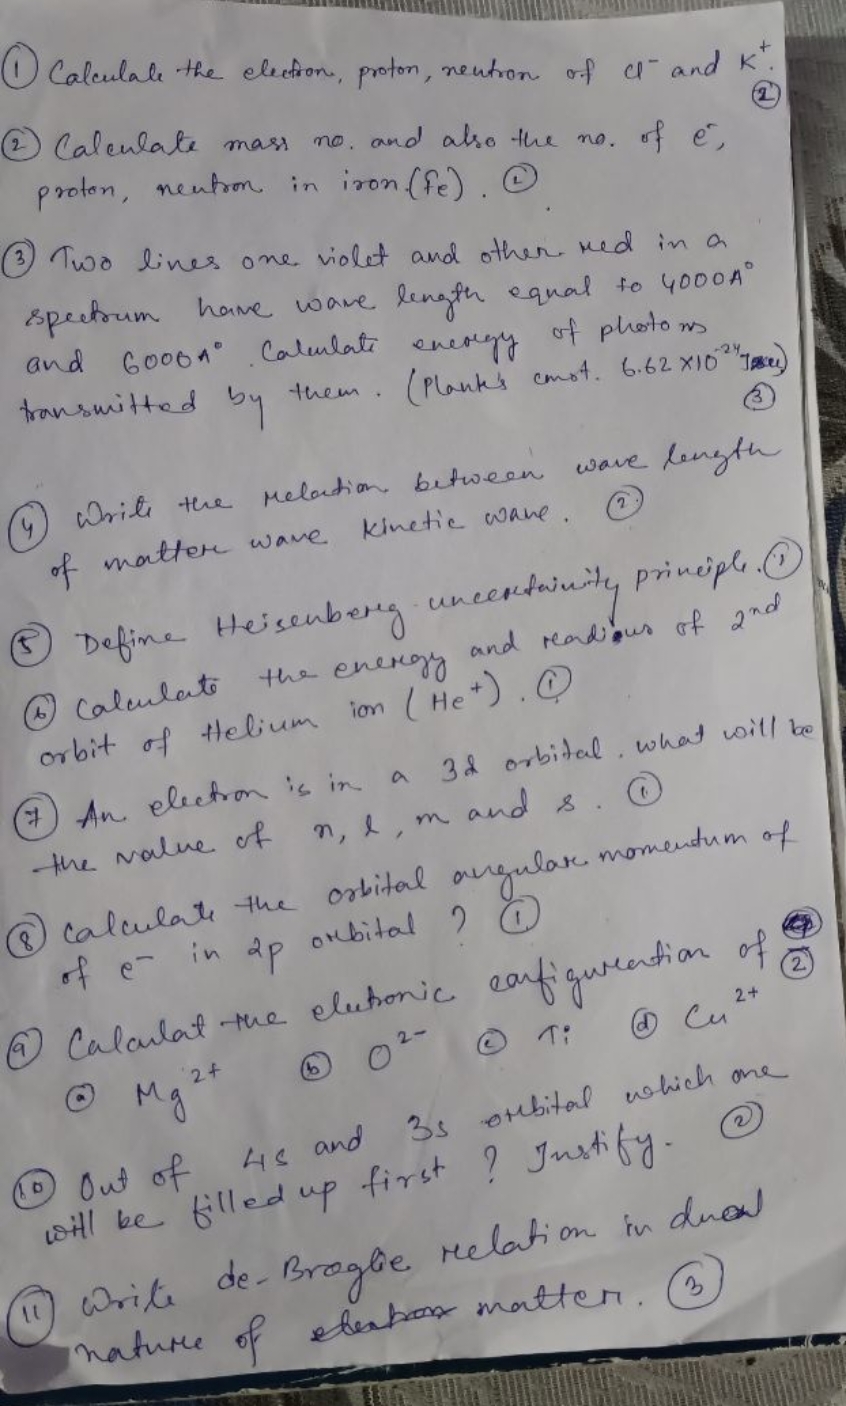 ① Calculate the electron, proton, neutron of Cl⁻ and K⁺.
②
② Calculate mass no. and also the no. of e⁻,
proton, neutron in iron (fe). ②
③ Two lines one violet and other red in a
spectrum have wave length equal to 4000A°
and 6000A°. Calculate energy of photons
transmitted by them. (Plank's const. 6.62 x10⁻²⁴
③
④ Write the relation between wave length
of matter wave kinetic wave. ②
⑤ Define Heisenberg uncertainity principle. ①
⑥ Calculate the energy and readious of 2nd
orbit of Helium ion (He⁺). ①
⑦ An electron is in a 3d orbital. what will be
the value of n, l, m and s. ①
⑧ Calculate the orbital angular momentum of
of e⁻ in 2p orbital ? ①
⑨ Calculat the elutronic configuration of
②
ⓐ Mg²⁺ ⓑ O²⁻ ⓒ Ti ⓓ Cu²⁺
⑩ Out of 4s and 3s orbital which one
will be filled up first ? Justify. ②
⑪ Write de-Broglie relation in dual
nature of matter. ③